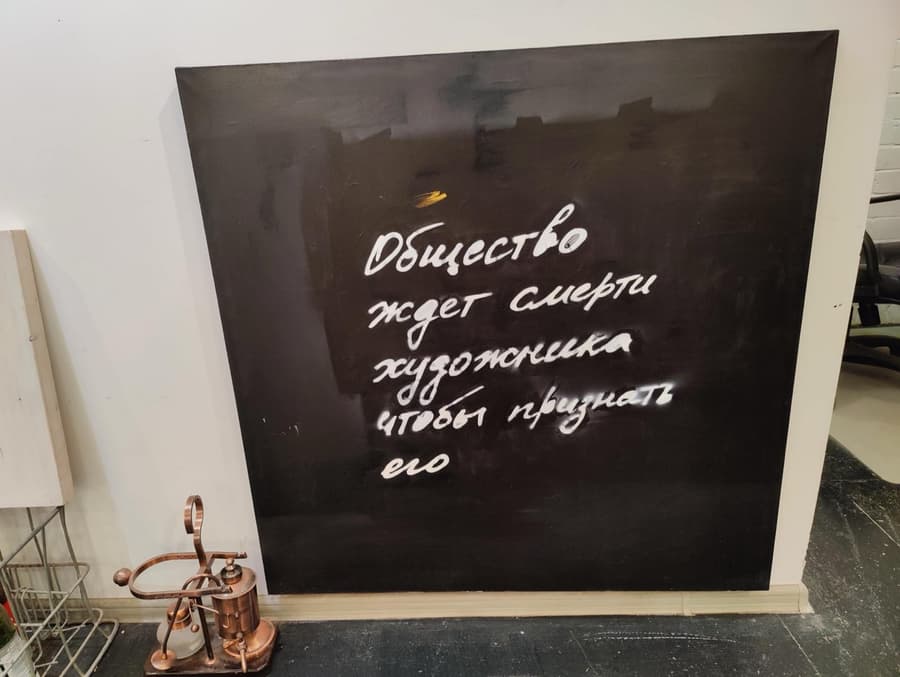 Общество
ждет смерти
художника
чтобы признать
его